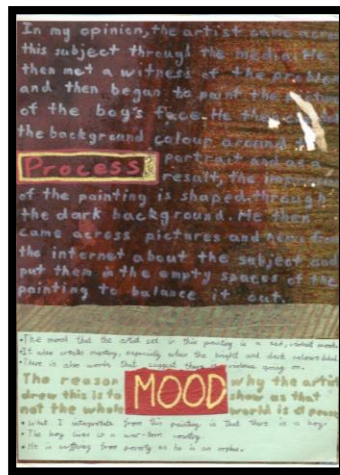 In my opinion, the artist came acros
this subject through the media. He
then met a witness of the problem
and then began to paint the
of the boy's face. He then
the background colour around
Process
portrait and as a
result, the
of the painting is shaped through
the dark background. He then
came across pictures and news from
the internet about the subject and
put them in the empty spaces of the
painting to balance it out.
•The mood that the artist set in this painting is a sad, violent mood.
•It also creates mystery, especially when the bright and dark colours blend.
•There is also words that suggest there is violence going on.
The reason
MOOD
why the artist
drew this is to
show us that
not the whole
world is at peace
• What I interpretate from this painting is that there is a boy.
• The boy lives in a war-torn country.
• He is suffering from poverty as he is an orphan.